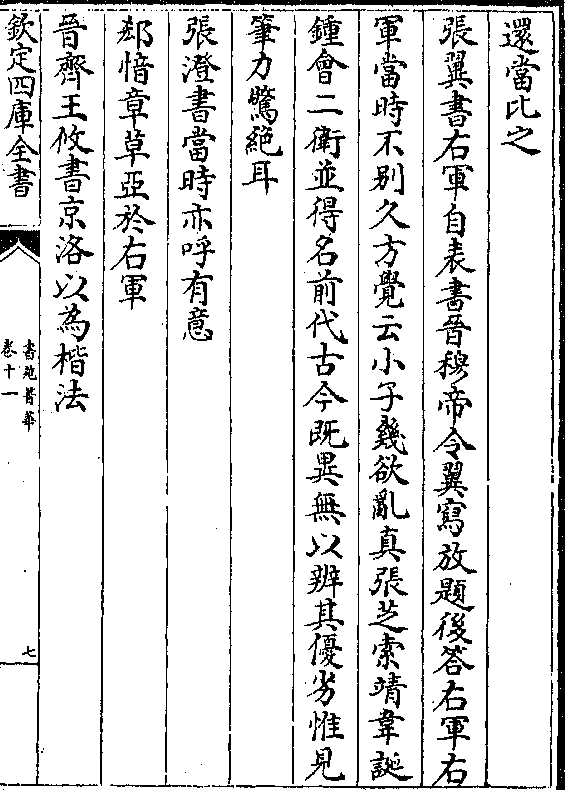 還當比之
張翼書右軍自表書晉穆帝令翼寫放題後答右軍右
軍當時不别久方覺云小子幾欲亂真張芝索靖韋誕
鍾會二衛並得名前代古今既異無以辨其優劣惟見
筆力驚絕耳
張澄書當時亦呼有意
郄愔章草亞於右軍
晉齊王攸書京洛以為楷法
欽定四庫全書
書苑菁華
卷十一
七